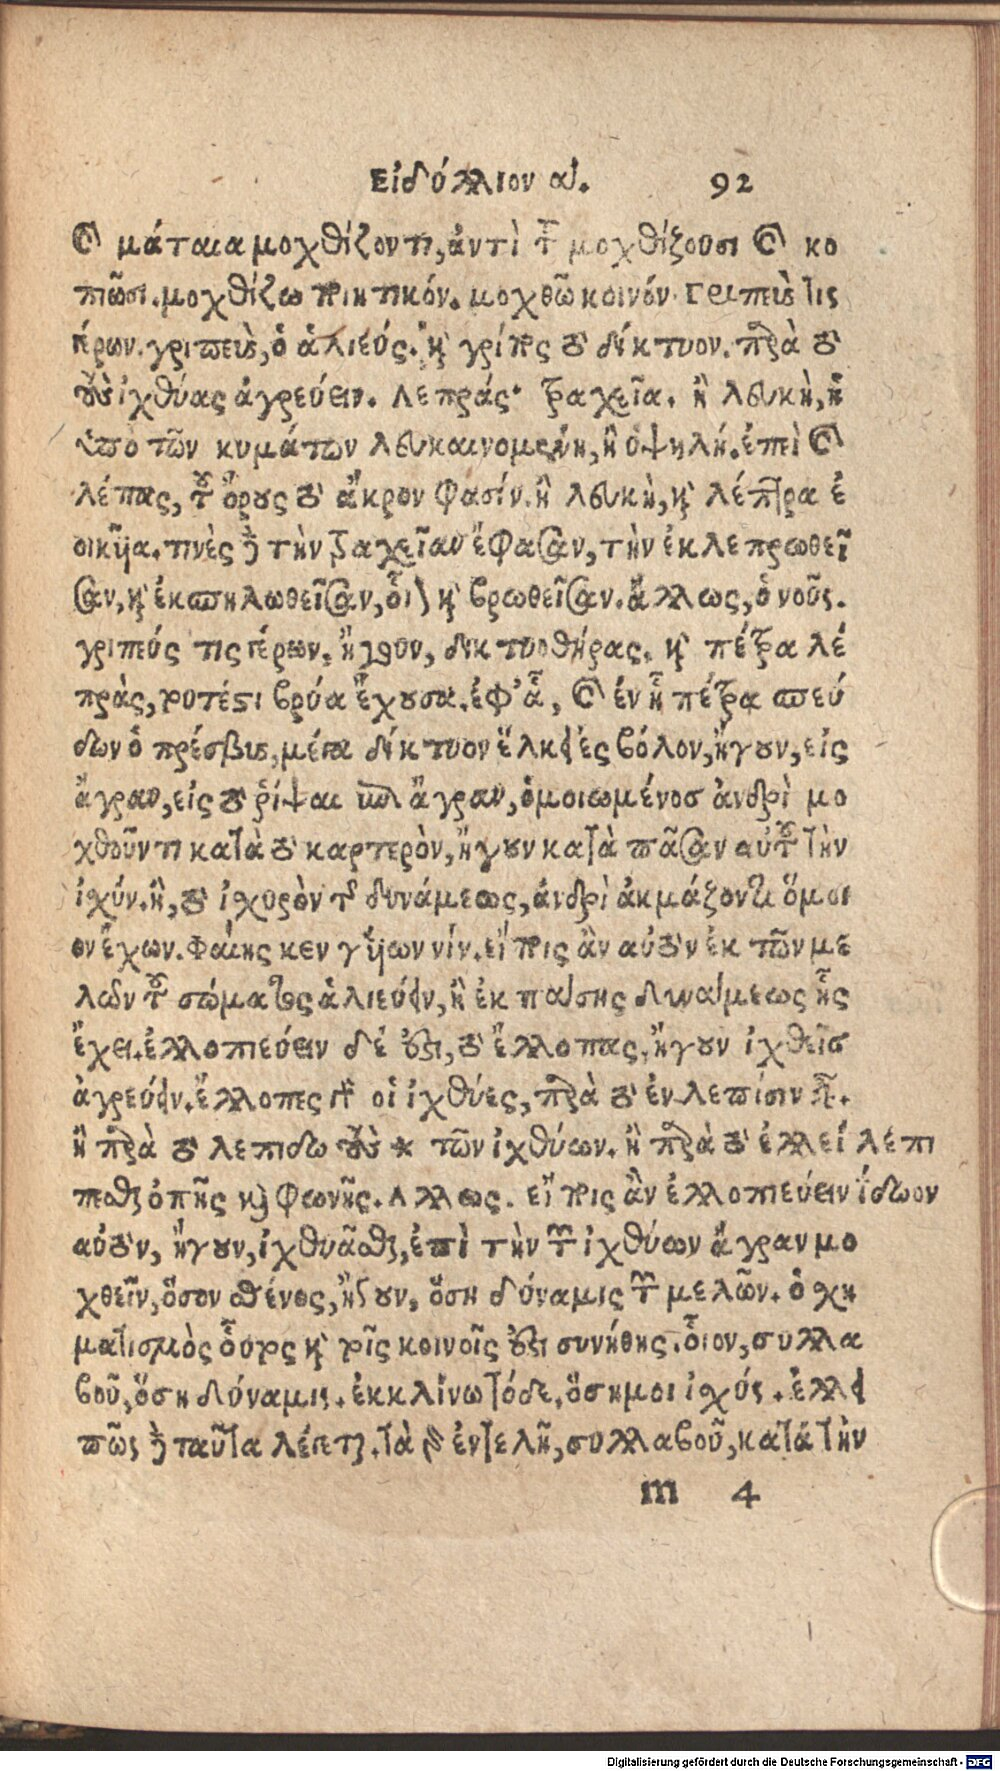 Εἰδύλλιον α΄. 92
μάταια μοχθίζοντι, ἀντὶ τοῦ μοχθίζουσι κο
πιῶσι. μοχθίζω ποιητικόν. μοχθῶ κοινόν. Γριπεύς τις
γέρων. γριπεὺς, ὁ ἁλιεύς. καὶ γρίπος τὸ δίκτυον. παρὰ τὸ
τοὺς ἰχθύας ἀγρεύειν. Λεπράς· τραχεῖα. ἢ λευκὴ, ἡ
ὑπὸ τῶν κυμάτων λευκαινομένη, ἢ ὑψηλή. ἐπεὶ
λέπας, τοῦ ὄρους τὸ ἄκρον φασίν. ἢ λευκὴ, καὶ λέπρα ἐ
οικῦια. τινὲς δὲ τὴν τραχεῖαν ἔφασαν, τὴν ἐκλεπρωθεῖ
σαν, καὶ ἐκπηλωθεῖσαν, οἷον καὶ βρωθεῖσαν. ἄλλως, ὁ νοῦς.
γριπεύς τις γέρων, ἤγουν, δικτυοθήρας. καὶ πέτρα λέ
πρὰς, τουτέστι βρύα ἔχουσα. ἐφ’ ᾇ, ἐν ᾗ πέτρα σπεύ
δων ὁ πρέσβυς, μέγα δίκτυον ἕλκει ἐς βόλον, ἤγουν, εἰς
ἄγραν, εἰς τὸ ῥίψαι ἄγραν, ὁμοιωμένος ἀνδρὶ μο
χθοῦντι κατὰ τὸ καρτερὸν, ἤγουν κατὰ πᾶσαν αὐτοῦ τὴν
ἰσχύν. ἢ, τὸ ἰσχυρὸν τῆς δυνάμεως, ἀνδρὶ ἀκμάζοντι ὅμοι
ον ἔχων. Φαίης κεν γυίων νίν. εἴποις ἂν αὐτὸν ἐκ τῶν με
λῶν τοῦ σώματος ἁλιεύειν, ἢ ἐκ πάσης δυνάμεως ἧς
ἔχει. ἐλλοπιεύειν δέ ἐστι, τὸ ἔλλοπας, ἤγουν ἰχθεῖς
ἀγρεύειν. ἔλλοπες γὰρ οἱ ἰχθύες, παρὰ τὸ ἐν λεπίσιν
ἢ παρὰ τὸ λεπιδω * τῶν ἰχθύων. ἢ παρὰ τὸ ἐλλείλέπι
ὀπῆς καὶ φωνῆς. Αλλως. εἴποις ἂν ἐλλοπιεύειν ἰδωον
αὐτὸν, ἤγουν, ἰχθυᾶσθαι, ἐπὶ τὴν τῶν ἰχθύων ἄγραν μο
χθεῖν, ὅσον σθένος, ἤγουν, ὅση δύναμις τῶν μελῶν. ὁ σχη
ματισμὸς οὗτος καὶ τοῖς κοινοῖς ἐστι συνήθης. οἷον, συλλα
βοῦ, ὅση δύναμις. ἐκκλίνω τόδε, ὅση μοι ἰσχύς. ἐλλει
πῶς δὲ ταῦτα λέγεται. τὰ γὰρ ἐντελῆ, συλλαβοῦ, κατὰ τὴν
m 4
Digitalisierung gefördert durch die Deutsche Forschungsgemeinschaft - DFG